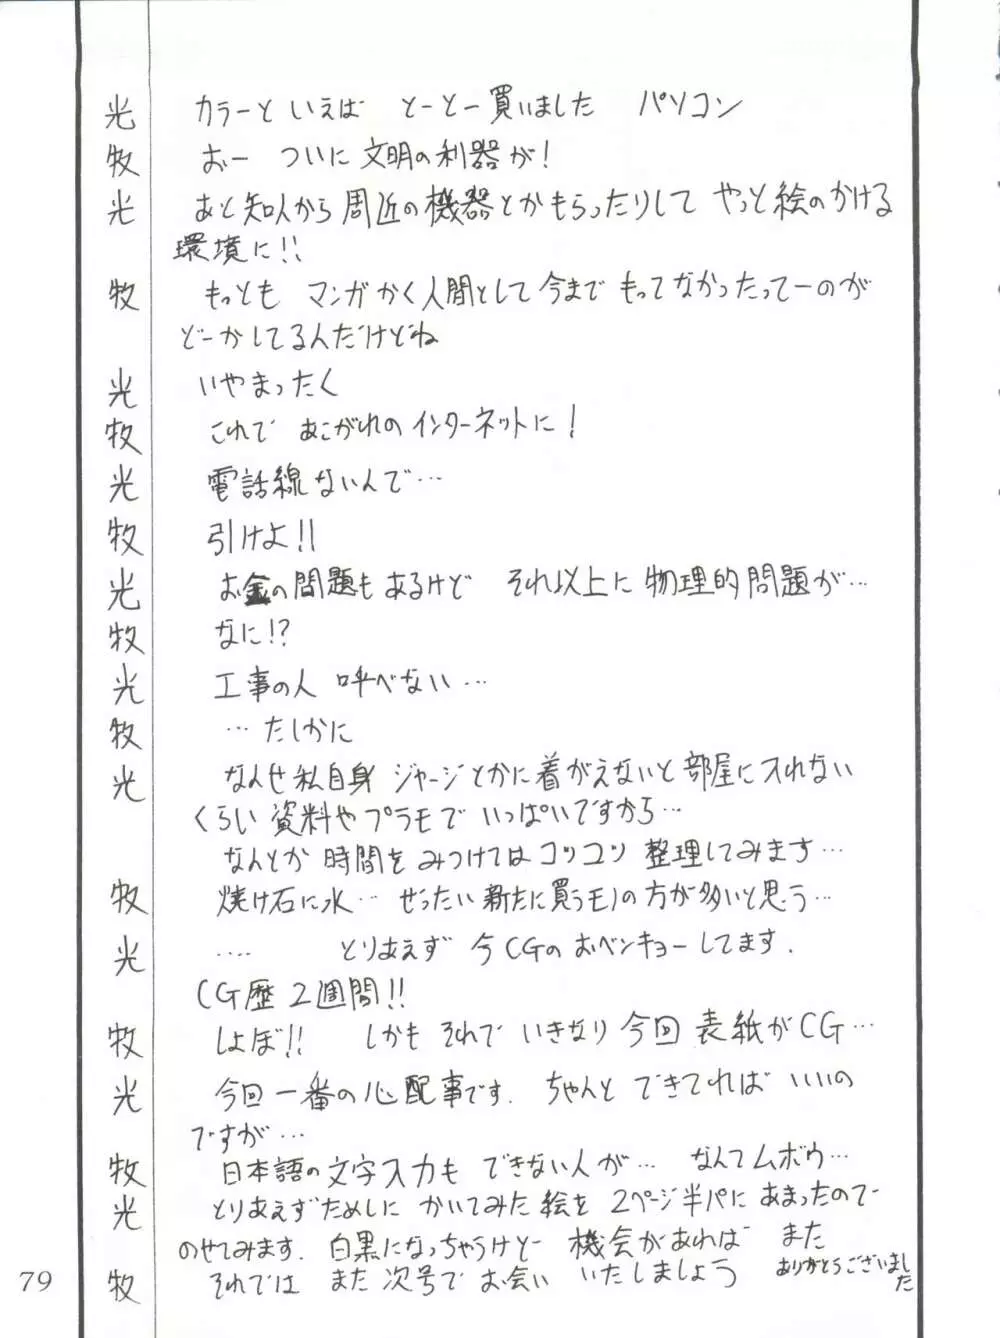 光 カラーといえば とーとー買いました パソコン
牧 おー ついに文明の利器が!
光 あと知人から周辺の機器とかもらったりして やっと絵のかける
環境に!!
牧 もっとも マンガかく人間として今までもってなかったってーのが
どーかしてるんだけどね
光 いやまったく
牧 これで あこがれのインターネットに!
光 電話線ないんで…
牧 引けよ!!
光 お金の問題もあるけど それ以上に物理的問題が…
牧 なに!?
光 工事の人 呼べない…
牧 …たしかに
光 なんせ私自身 ジャージとかに着がえないと部屋に入れない
くらい資料やプラモでいっぱいですから…
なんとか時間をみつけてはコツコツ整理してみます…
牧 焼け石に水… ぜったい新たに買うモノの方が多いと思う…
光 …. とりあえず 今CGのおベンキョーしてます.
CG歴2週間!!
牧 しょぼ!! しかもそれでいきなり今回表紙がCG…
光 今回一番の心配事です. ちゃんとできてればいいの
ですが…
牧 日本語の文字入力もできない人が… なんてムボウ…
光 とりあえずためしにかいてみた絵を2ページ半パにあまったので
のせてみます. 白黒になっちゃうけどー 機会があれば また
牧 それでは また次号でお会いいたしましょう ありがとうございまし
た
79